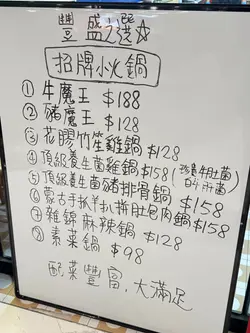 豐盛之選☆
招牌小火鍋
① 牛魔王 $188
② 豬魔王 $128
③ 花膠竹笙雞鍋 $128
④ 頂級養生菌雞鍋 $158
⑤ 頂級養生菌豬排骨鍋 $158
⑥ 蒙古手抓羊扒拼肚包肉鍋 $158
⑦ 雜錦麻辣鍋 $128
⑧ 素菜鍋 $98
配菜豐富,大滿足